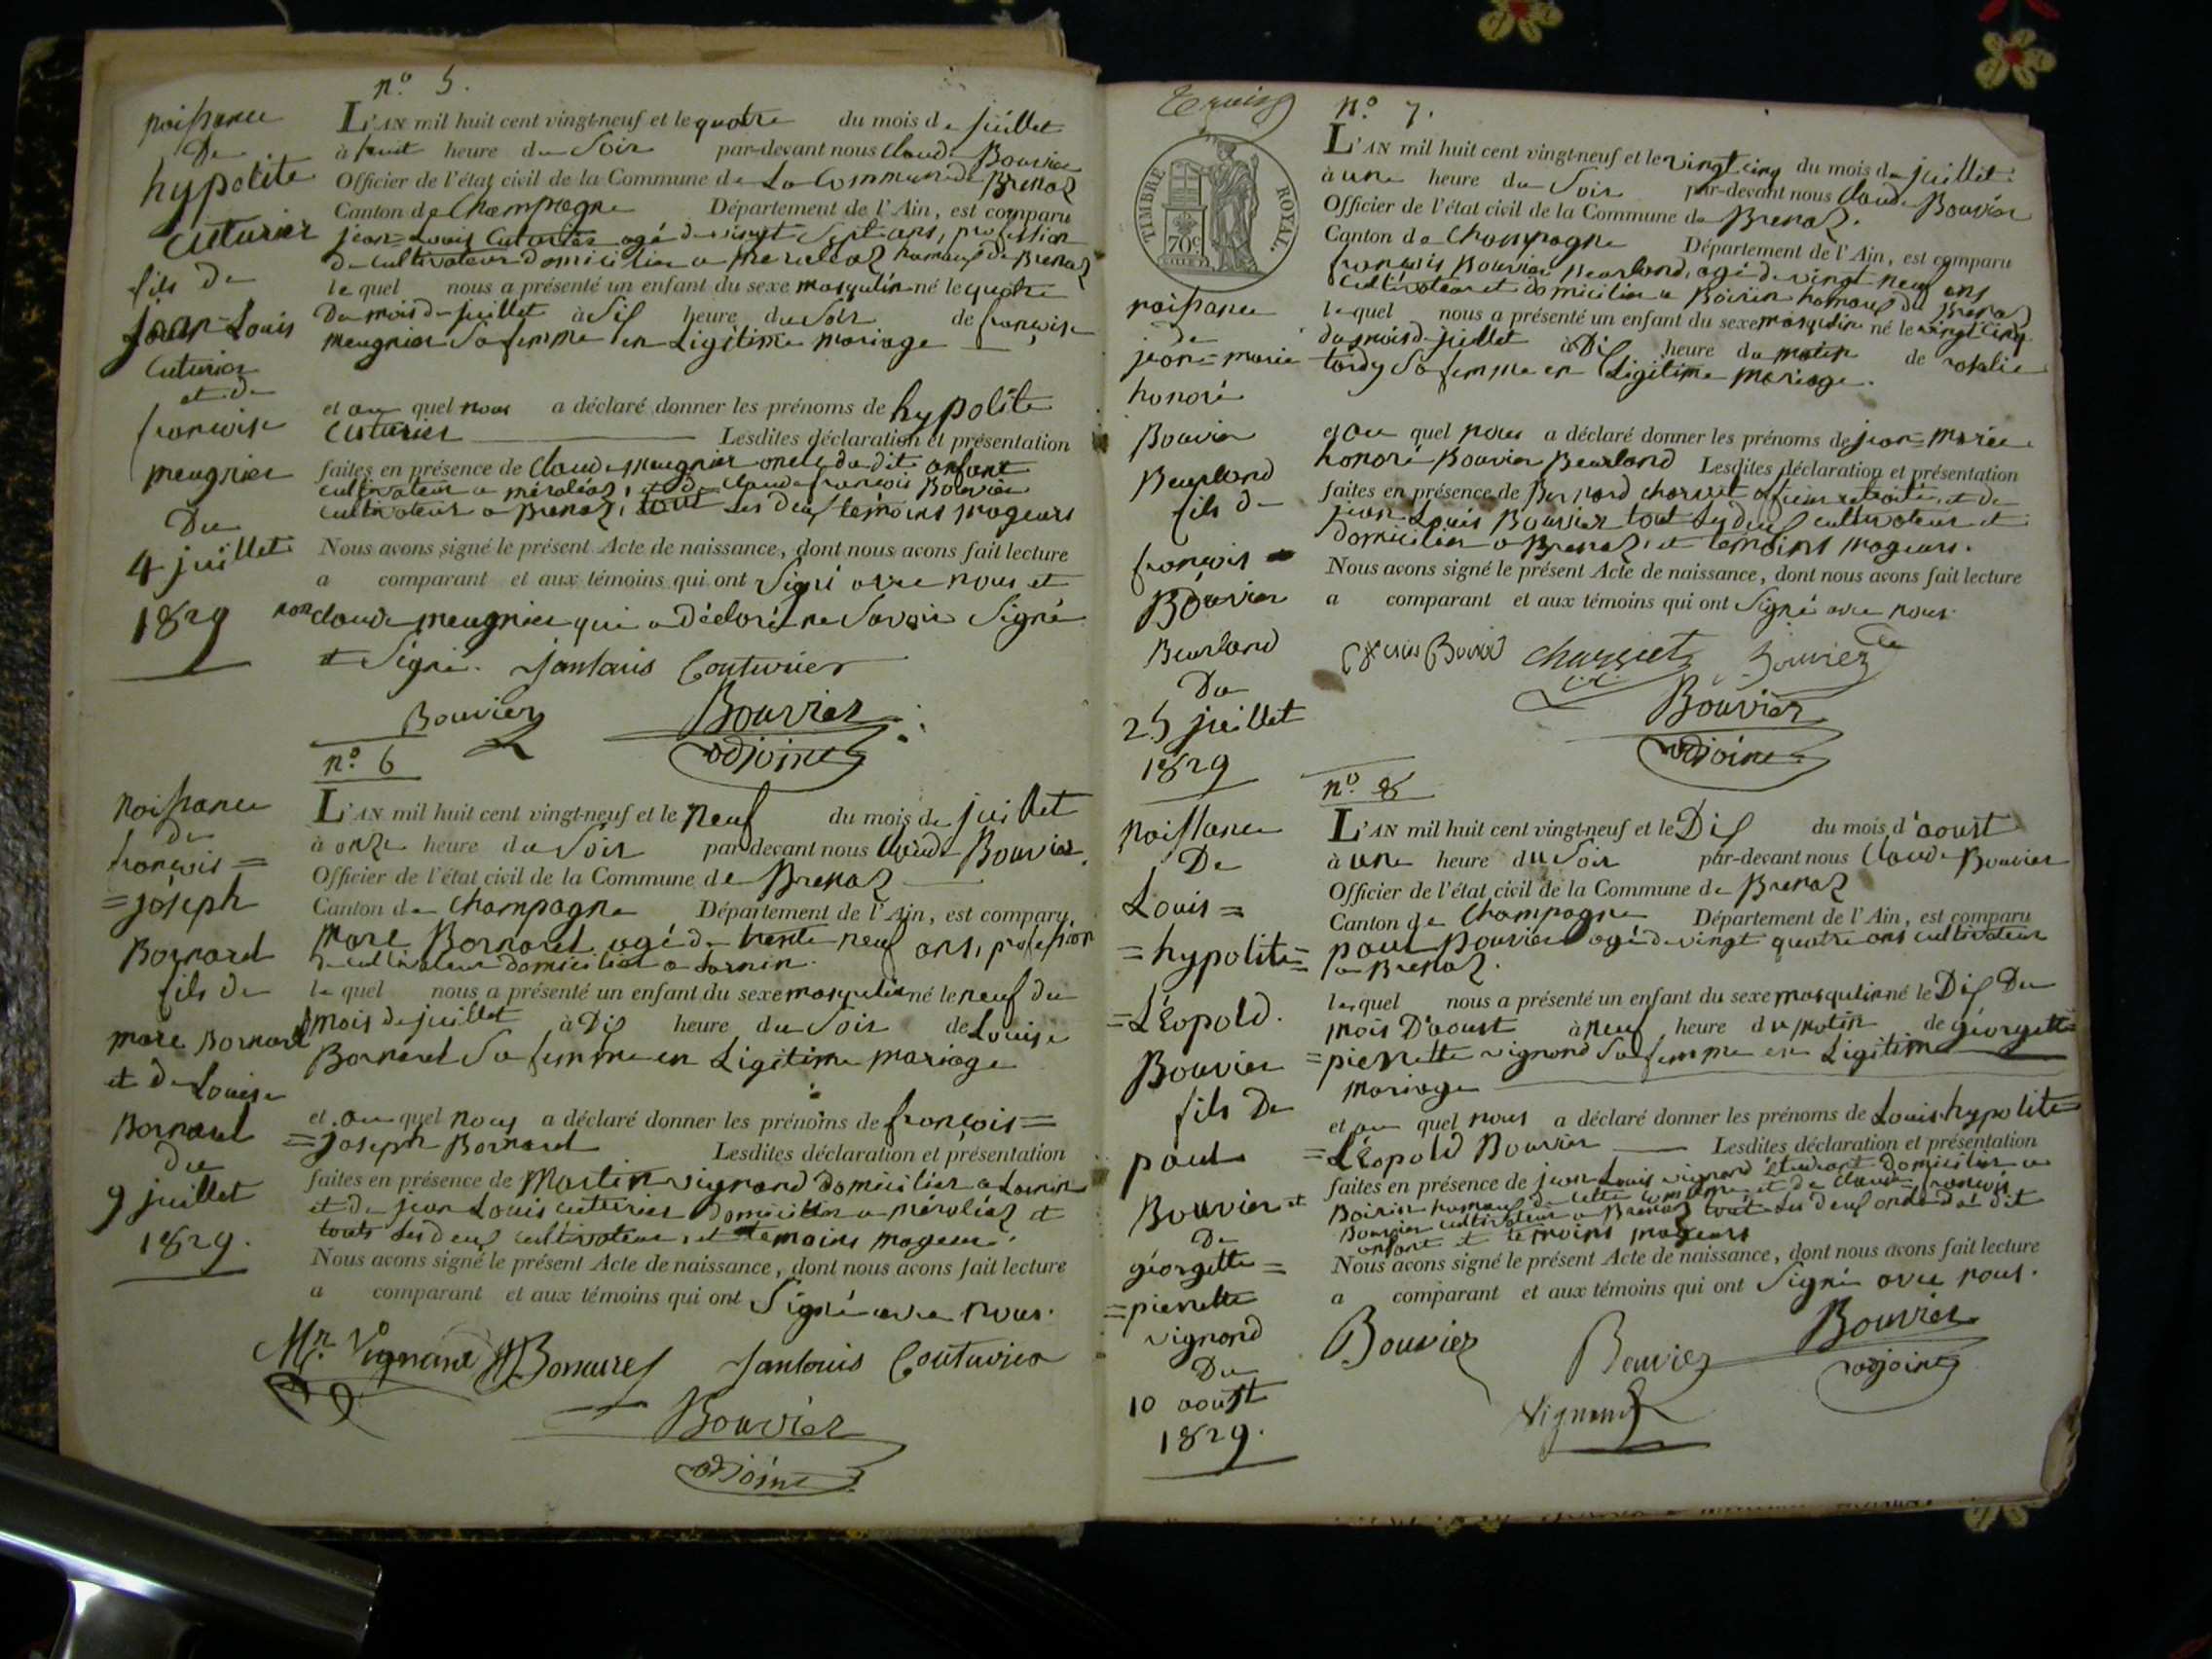 n.° 5.
naissance
De
hypolite
Cuturier
fils de
Jean-Louis
Cuturier
et de
françoise
meugnier
Du
4 juillet
1829
L'AN mil huit cent vingt-neuf et le quatre du mois de juillet
à huit heure du Soir par-devant nous Claude Bouvier
Officier de l'état civil de la Commune de La Commune de Brenaz
Canton de Champagne Département de l'Ain, est comparu
jean-Louis Cuturier agé de vingt Sept ans, profession
de cultivateur domicilier a meraleaz hamaux de Brenaz
le quel nous a présenté un enfant du sexe masqulin né le quatre
Du mois de juillet à Six heure du Soir de françoise
meugnier Sa femme en Ligitime mariage
et au quel nous a déclaré donner les prénoms de hypolite
Cuturier Lesdites déclaration et présentation
faites en présence de Claude meugnier oncle du dit enfant
cultivateur a méraléaz, et de Claude françois Bouvier
cultivateur a Brenaz, tout les deux témoins mageurs
Nous avons signé le présent Acte de naissance, dont nous avons fait lecture
a comparant et aux témoins qui ont Signé avec nous et
non claude meugnier qui a Déclaré ne Savoir Signé
et Signé. Janlouis Couturier
Bouvier Bouvier
adjoint
n.° 6
naissance
de
françois=
=joseph
Bornard
fils de
marc Bornard
et de Louise
Bornard
du
9 juillet
1829.
L'AN mil huit cent vingt-neuf et le neuf du mois de juillet
à onze heure du Soir par-devant nous Claude Bouvier
Officier de l'état civil de la Commune de Brenaz
Canton de Champagne Département de l'Ain, est comparu
marc Bornard agé de trente neuf ans, profession
de cultivateur domicilier a Larnin.
le quel nous a présenté un enfant du sexe masqulin né le neuf du
mois de juillet à Dix heure du Soir de Louise
Bornard Sa femme en Ligitime mariage
et au quel nous a déclaré donner les prénoms de françois=
=joseph Bornard Lesdites déclaration et présentation
faites en présence de Martin vignand domicilier a Larnin
et de jean Louis cuturier domicilier a méraléaz et
touts les deux cultivateur, et temoins mageurs.
Nous avons signé le présent Acte de naissance, dont nous avons fait lecture
a comparant et aux témoins qui ont Signé avec nous.
Mn Vignand Janlouis Couturier
Bouvier
adjoint
TIMBRE ROYAL.
70c
n.° 7.
naissance
de
jean=marie
honoré
Bouvier
Beurland
fils de
françois
Bouvier
Beurland
Du
25 juillet
1829
L'AN mil huit cent vingt-neuf et le vingt cinq du mois de juillet
à une heure du Soir par-devant nous Claude Bouvier
Officier de l'état civil de la Commune de Brenaz.
Canton de Champagne Département de l'Ain, est comparu
françois Bouvier Beurland, agé de vingt neuf ans
Cultivateur et domicilier a Boirin hamaux de Brenaz
le quel nous a présenté un enfant du sexe masqulin né le vingt cinq
du mois de juillet à Dix heure du matin de rosalie
tardy Sa femme en Ligitime mariage.
et au quel nous a déclaré donner les prénoms de jean=marie
honoré Bouvier Beurland Lesdites déclaration et présentation
faites en présence de Bernard charvet officier retraité, et de
jean Louis Bouvier tout les deux cultivateur et
domicilier a Brenaz, et temoins mageurs.
Nous avons signé le présent Acte de naissance, dont nous avons fait lecture
a comparant et aux témoins qui ont Signé avec nous.
Bouvier
Bouvier
adjoint
n.° 8
naissance
De
Louis=
=hypolite=
=Léopold.
Bouvier
fils De
paul
Bouvier et
De
géorgette=
=pierrette
vignand
Du
10 aoust
1829.
L'AN mil huit cent vingt-neuf et le Dix du mois d'aoust
à une heure du Soir par-devant nous Claude Bouvier
Officier de l'état civil de la Commune de Brenaz
Canton de Champagne Département de l'Ain, est comparu
paul Bouvier agé de vingt quatre ans cultivateur
a Brenaz.
le quel nous a présenté un enfant du sexe masqulin né le Dix Du
mois D'aoust à neuf heure du matin de géorgette
=pierrette vignand Sa femme en Ligitime
mariage
et au quel nous a déclaré donner les prénoms de Louis hypolite
=Léopold Bouvier Lesdites déclaration et présentation
faites en présence de jean Louis vignand étudiant domicilier a
Boirin hamaux de cette commune, et de claude françois
Bouvier cultivateur a Brenaz tout les deux oncle du dit
enfant et temoins mageurs
Nous avons signé le présent Acte de naissance, dont nous avons fait lecture
a comparant et aux témoins qui ont Signé avec nous.
Bouvier Bouvier Bouvier
adjoint
Vignand